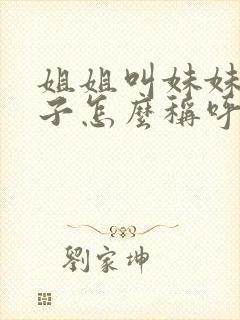 姐姐叫妹妹
子怎麼稱呼
劉家坤